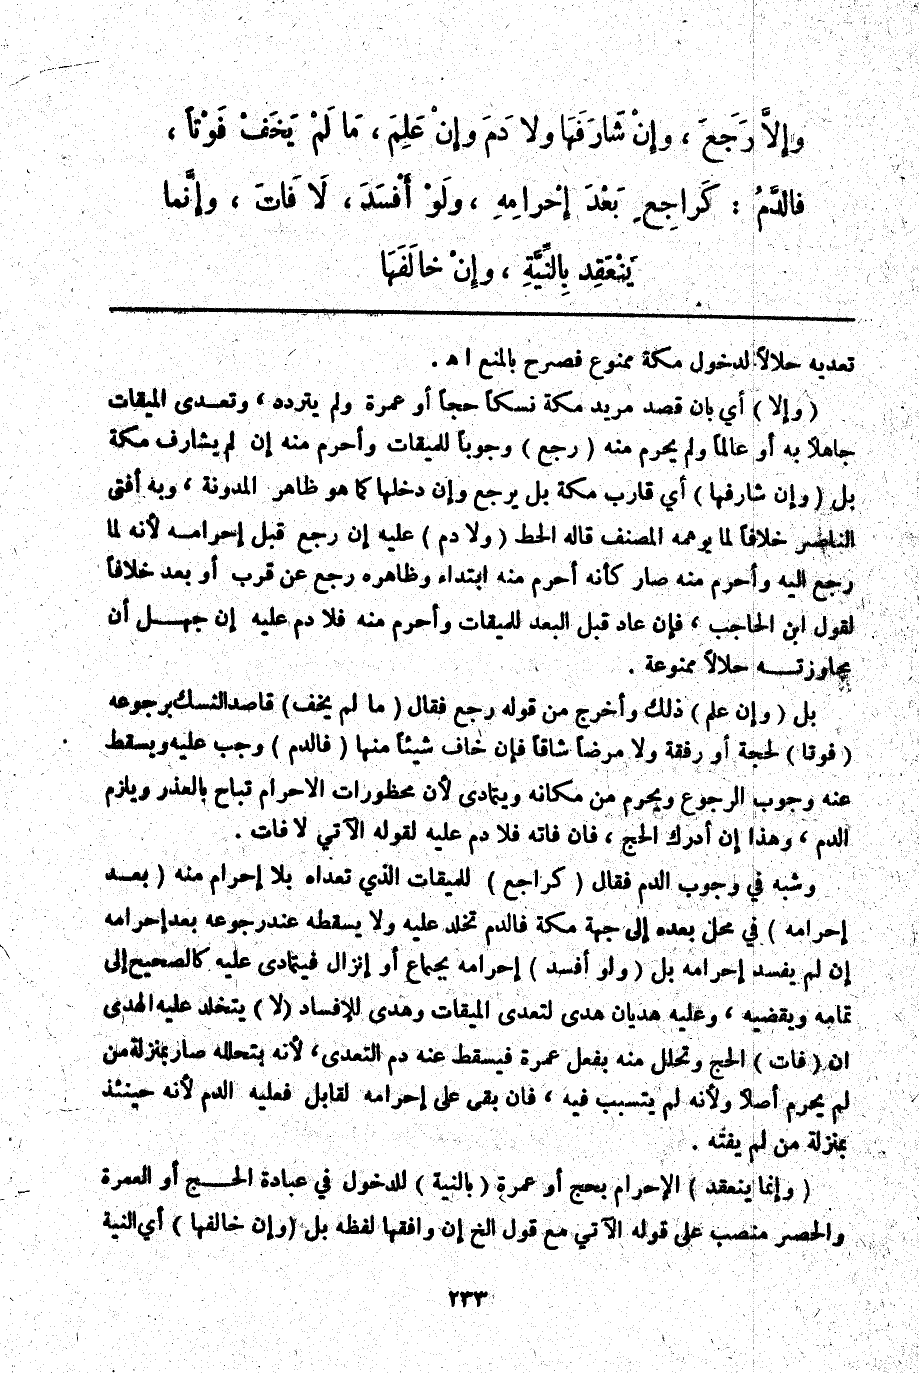 وإلاَّ رَجَعَ ، وإنْ شَارَفَهَا ولا دَمَ وإنْ عَلِمَ ، مَا لَمْ يَخَفْ فَوْتاً ،
فالدَّمُ : كَرَاجِعٍ بَعْدَ إحْرامِهِ ، ولَوْ أفْسَدَ ، لَا فَاتَ ، وإنَّما
يَنْعَقِد بِالنِّيَّةِ ، وإِنْ خالَفَهَا
تعديه حلالاً لدخول مكة ممنوع فصرح بالمنع ا ه .
( وإلا ) أي بان قصد مريد مكة نسكاً حجاً أو عمرة ولم يتردد ، وتعـدى الميقات
جاهلا به أو عالماً ولم يحرم منه ( رجع ) وجوباً للميقات وأحرم منه إن لم يشارف مكة
بل ( وإن شارفها ) أي قارب مكة بل يرجع وإن دخلها كما هو ظاهر المدونة ، وبه أفتى
الناصر خلافاً لما يوهمه المصنف قاله الحط ( ولا دم ) عليه إن رجع قبل إحرامـه لأنه لما
رجع اليه وأحرم منه صار كأنه أحرم منه ابتداء وظاهره رجع عن قرب أو بعد خلافاً
لقول ابن الحاجب ، فإن عاد قبل البعد للميقات وأحرم منه فلا دم عليه إن جهـل أن
مجاوزتـه حلالاً ممنوعة .
بل ( وإن علم ) ذلك وأخرج من قوله رجع فقال ( ما لم يخف ) قاصد النسك برجوعه
( فوتا ) لحجة أو رفقة ولا مرضاً شاقاً فإن خاف شيئاً منها ( فالدم ) وجب عليه ويسقط
عنه وجوب الرجوع ويحرم من مكانه ويتمادى لأن محظورات الاحرام تباح بالعذر ويلزم
الدم ، وهذا إن أدرك الحج ، فان فاته فلا دم عليه لقوله الآتي لا فات .
وشبه في وجوب الدم فقال ( كراجع ) للميقات الذي تعداه بلا إحرام منه ( بعـد
إحرامه ) في محل بعده إلى جهة مكة فالدم تخلد عليه ولا يسقطه عند رجوعه بعد إحرامه
إن لم يفسد إحرامه بل ( ولو أفسد ) إحرامه بجماع أو إنزال فيتمادى عليه كالصحيح إلى
تمامه ويقضيه ، وعليه هديان هدى لتعدى الميقات وهدى للإفساد ( لا ) يتخلد عليه الهدى
ان ( فات ) الحج وتحلل منه بفعل عمرة فيسقط عنه دم التعدى ، لأنه بتحلله صار بمنزلة من
لم يحرم أصلاً ولأنه لم يتسبب فيه ، فان بقى على إحرامه لقابل فعليه الدم لأنه حينئذ
بمنزلة من لم يفته .
( وإنما ينعقد ) الإحرام بحج أو عمرة ( بالنية ) للدخول في عبادة الحـج أو العمرة
والحصر منصب على قوله الآتي مع قول الخ إن وافقها لفظه بل ( وإن خالفها ) أي النية
٢٣٣